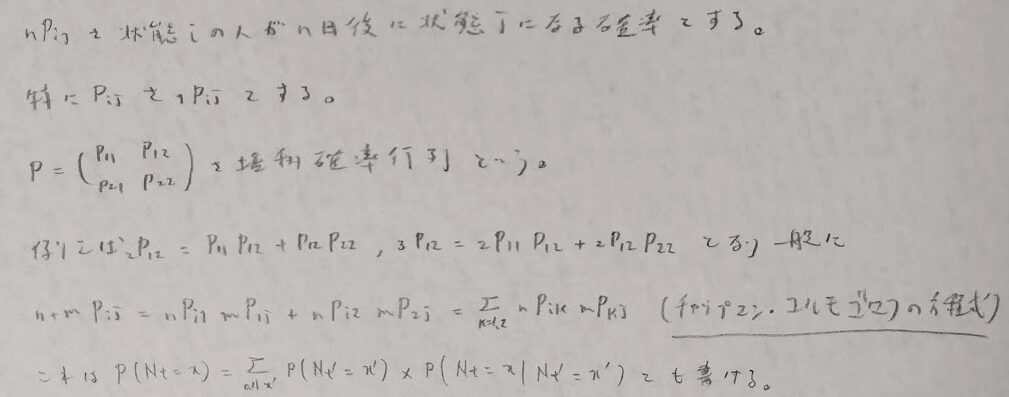 nPij を状態iの人がn日後に状態jになる確率とする。
特に Pij を 1Pij とする。
P = (P11 P12 P21 P22) を推移確率行列という。
例えば 2P12 = P11 P12 + P12 P22 , 3P12 = 2P11 P12 + 2P12 P22 となり 一般に
n+m Pij = nPi1 mP1j + nPi2 mP2j = Σ k=1,2 nPik mPkj (チャップマン・コルモゴロフの方程式)
これは P(Nt = x) = Σ all x' P(Nt' = x') × P(Nt = x | Nt' = x') とも書ける。